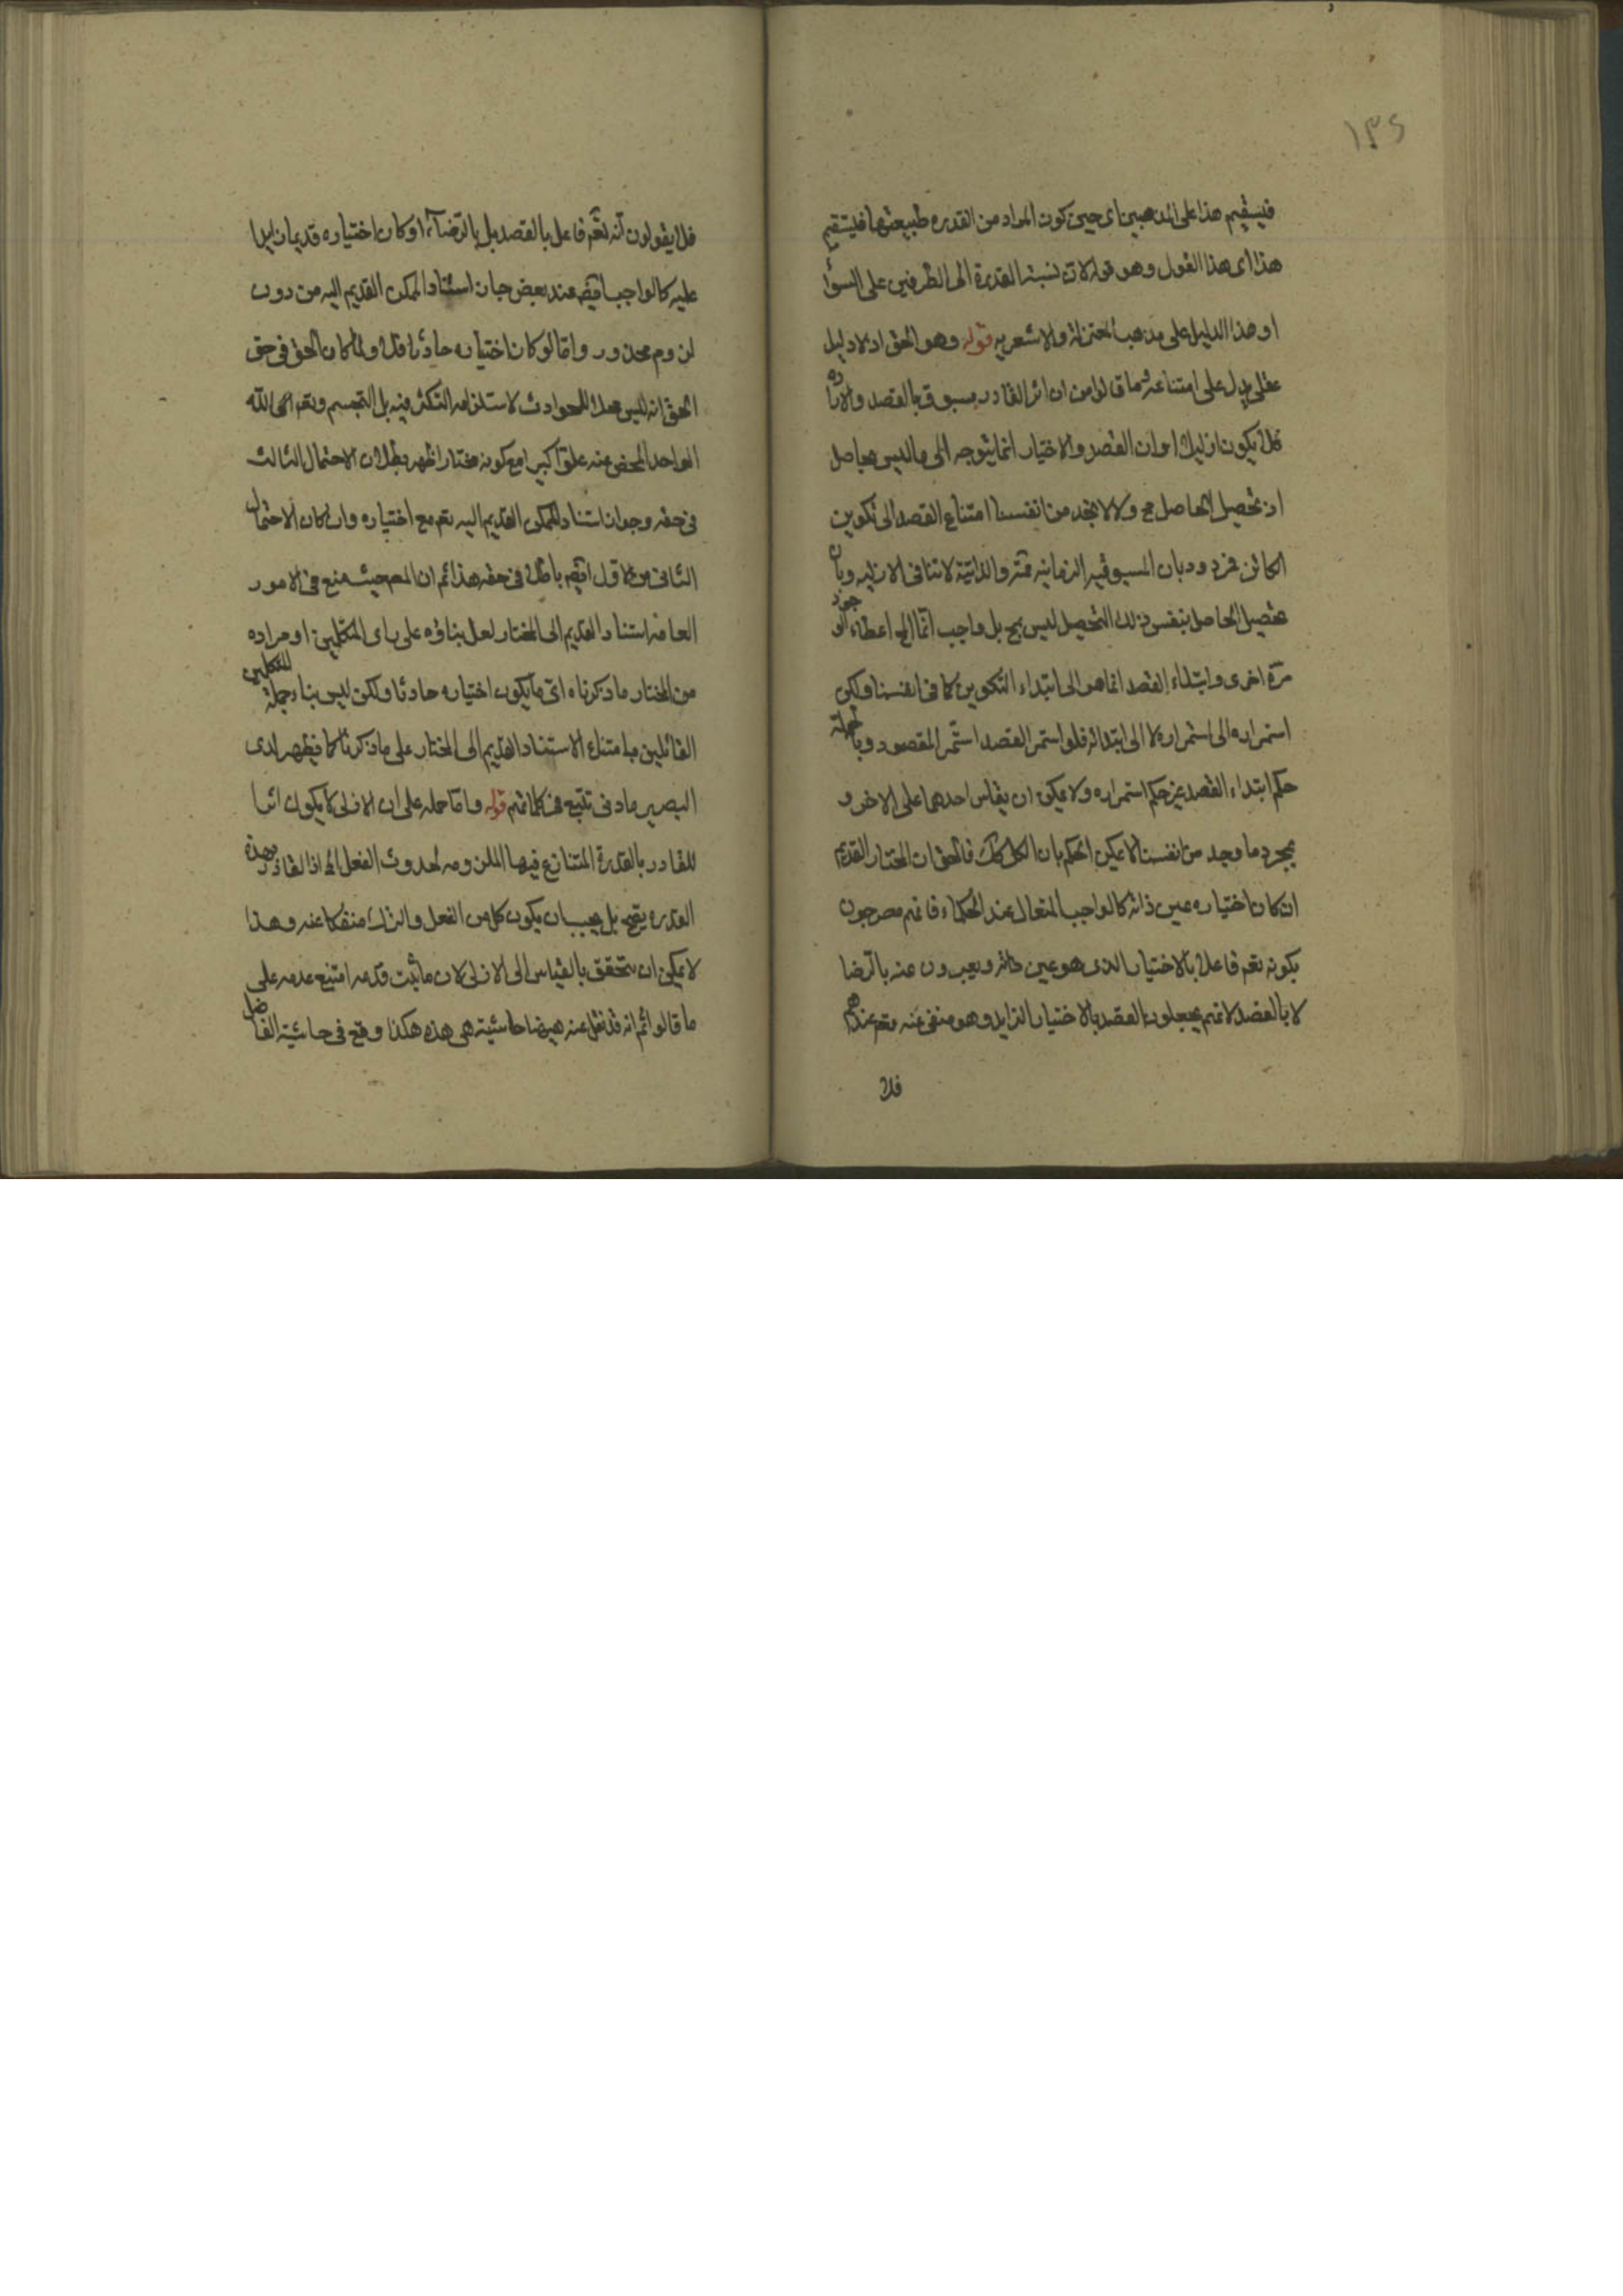 ١٣٤
فيستقيم هذا على المذهبين اى حين كون المراد من القدره طبيعتها فليستقيم
هذا اى هذا القول وهو قوله لان نسبة القدرة الى الطرفين على السوا
او هذا الدليل على مذهب المعتزلة والاشعريه قوله وهو الحق اذ لا دليل
عقلى يدل على امتناعه وما قالوا من ان اثر القادر مسبوق بالقصد والاراده
فلا يكون ازليا او ان القصد والاختيار انما يتوجه الى ما ليس بحاصل
اذ تحصيل الحاصل مح ولا لا نجد من انفسنا امتناع القصد الى تكوين
الكائن فمردود بان المسبوقيه الزمانية والذاتية لا تنافى الازليه وبان
تحصيل الحاصل بنفس ذلك التحصيل ليس بمح بل واجب انما المح اعطاء الوجود
مرة اخرى وابتداء القصد انما هو الى ابتداء التكوين كما فى انفسنا ولكن
استمراره الى استمراره لا الى ابتدائه فلو استمر القصد استمر المقصود وبالجملة
حكم ابتداء القصد غير حكم استمراره ولا يمكن ان يقاس احدهما على الاخر و
بمجرد ما وجد من انفسنا لا يمكن الحكم بان الكل كك فالحق ان المختار القديم
ان كان اختياره عين ذاته كالواجب المتعال عند الحكماء فانهم مصرحون
بكونه تعم فاعلا بالاختيار الذى هو عين ذاته ويعبرون عنه بالرضا
لا بالقصد لانهم يجعلون القصد بالاختيار الزايد وهو منفى عنه تعم عندهم
فلا
فلا يقولون انه تعم فاعل بالقصد بل بالرضاء او كان اختياره قديما زايدا
عليه كالواجب ايضا عند بعض جاز استناد الممكن القديم اليه من دون
لزوم محذور واما لو كان اختياره حادثا فلا ولما كان الحق فى حق
الحق انه ليس محلا للحوادث لاستلزامه التكثر فيه بل التجسم وتعم اله الله
الواحد المحض عنه علوا كبيرا مع كونه مختارا ظهر بطلان الاحتمال الثالث
فى حقه وجواز استناد الممكن القديم اليه تعم مع اختياره وان كان الاحتمال
الثانى من الاول ايضم باطلا فى حقه هذا ثم ان المصم حيث منع فى الامور
العامه استناد القديم الى المختار لعل بناؤه على راى المتكلمين او مراده
من المختار ما ذكرناه اى ما يكون اختياره حادثا ولكن ليس بناء جملة المتكلمين
القائلين بامتناع الاستناد القديم الى المختار على ما ذكرنا كما يظهر لدى
البصير بادنى تتبع فى كلماتهم قوله واما حمله على ان الازلى لا يكون اثرا
للقادر بالقدرة المتنازع فيها الملزومه لحدوث الفعل اذ القادر بهذه
القدره يصح بل يجب ان يكون كل من الفعل والترك منفكا عنه وهذا
لا يمكن ان يتحقق بالقياس الى الازلى لان ما ثبت قدمه امتنع عدمه على
ما قالوا ثم انه قد نقل عنه هيهنا حاشية هى هذه هكذا وقع فى حاشية الفاضل